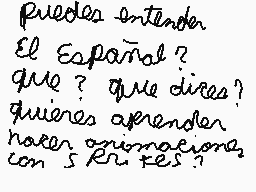 puedes entender
El Español?
que? que dices?
quieres aprender
hacer animaciones
con sprites?